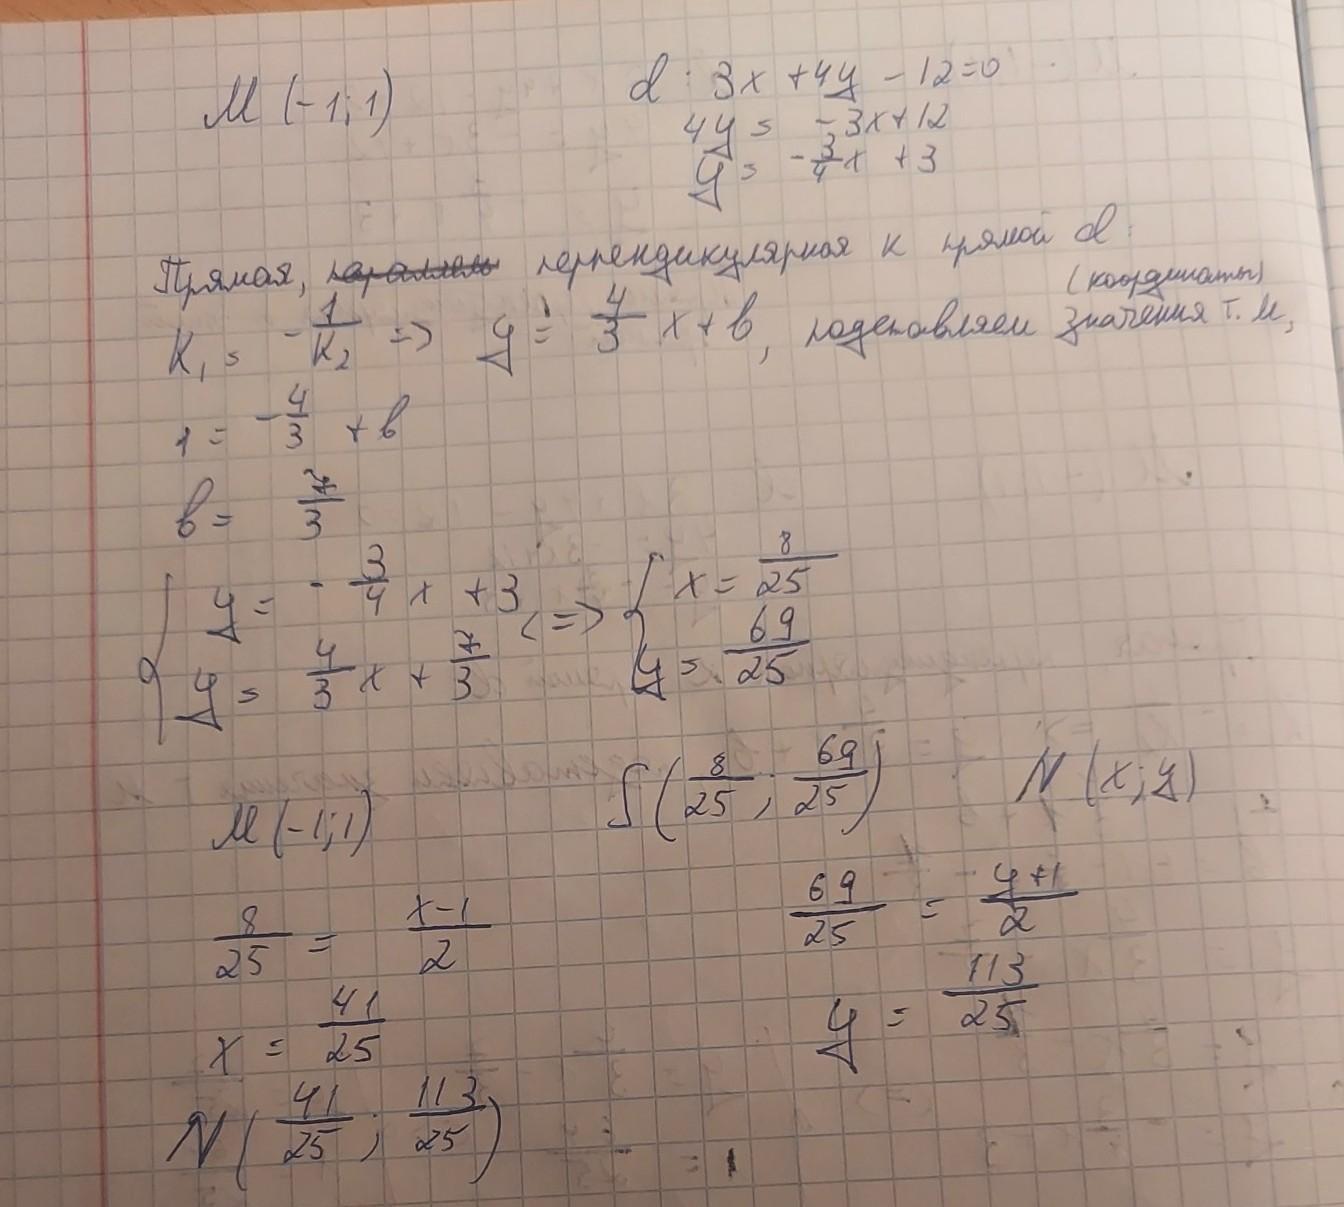 М (-1; 1)
d : 3x + 4y - 12 = 0
4y = -3x + 12
y = -3/4 x + 3
Прямая, перпендикулярная к прямой d:
(координаты)
K₁ = -1/K₂ => y = 4/3 x + b, подставляем значения т. М,
1 = -4/3 + b
b = 7/3
{ y = -3/4 x + 3 <=> { x = 8/25
y = 4/3 x + 7/3 y = 69/25
М (-1; 1) S (8/25 ; 69/25) N (x; y)
8/25 = x-1/2 69/25 = y+1/2
x = 41/25 y = 113/25
N (41/25 ; 113/25)